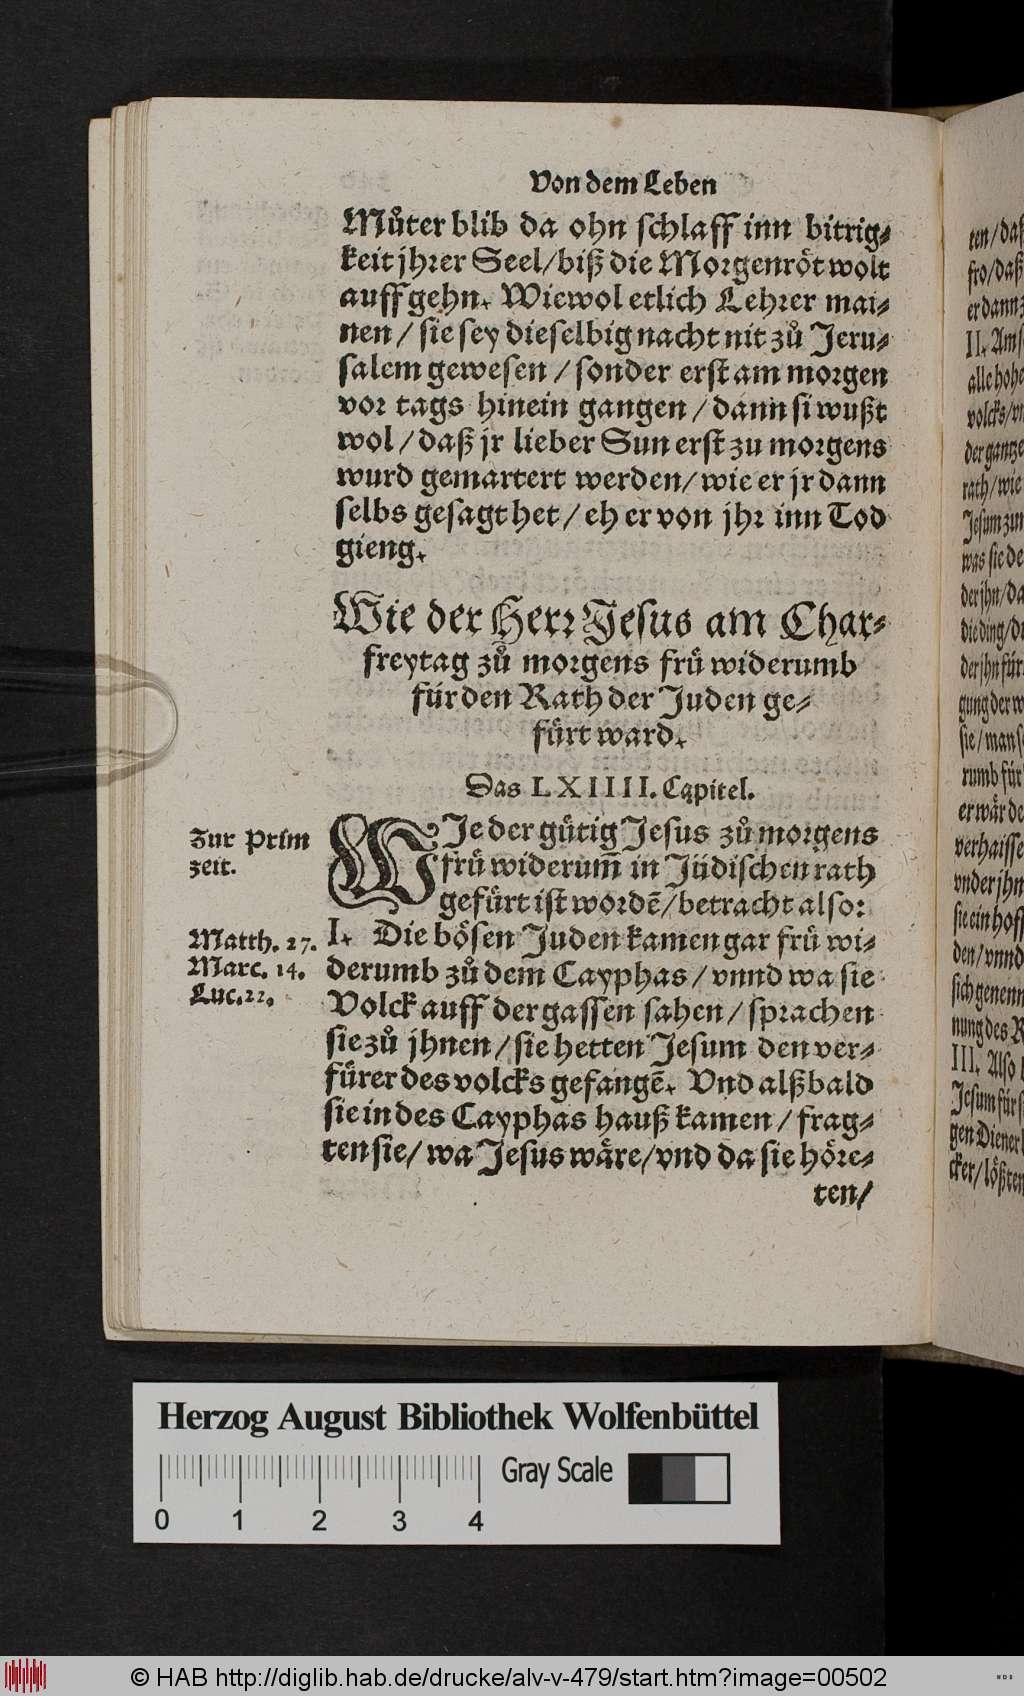 Von dem Leben
Muͦter blib da ohn schlaff inn bitrig-
keit jhrer Seel/biß die Morgenröt wolt
auff gehn. Wiewol etlich Lehrer mai-
nen / sie sey dieselbig nacht nit zuͦ Jeru-
salem gewesen / sonder erst am morgen
vor tags hinein gangen / dann si wußt
wol / daß jr lieber Sun erst zu morgens
wurd gemartert werden/ wie er jr dann
selbs gesagt het / eh er von jhr inn Tod
gieng.
Wie der Herr Jesus am Char-
freytag zuͦ morgens frü widerumb
für den Rath der Juden ge-
fürt ward.
Das LXIIII. Capitel.
Zur Prim
zeit.
WJe der gütig Jesus zuͦ morgens
frü widerum̃ in Jüdischen rath
gefürt ist wordẽ/betracht also:
Matth. 27.
Marc. 14.
Luc. 22.
I. Die bösen Juden kamen gar frü wi-
derumb zuͦ dem Cayphas / vnnd wa sie
Volck auff der gassen sahen / sprachen
sie zuͦ jhnen / sie hetten Jesum den ver-
fürer des volcks gefangẽ. Vnd alßbald
sie in des Cayphas hauß kamen / frag-
ten sie/ wa Jesus wäre/vnd da sie höre-
ten/
ten/ daß
fro/daß
er dann
II. Am
alle hohe
volcks/
der gantze
rath/ wie
Jesum zum
was sie
der jhn/
die ding/
der jhn für
gung der
sie/ man
rumb für
er wär
verhaisse
vnder jhn
sie ein hoff
den/ vnnd
sich genenn
nung des
III. Also
Jesum für
gen Diener
cker/ lößten
Herzog August Bibliothek Wolfenbüttel
Gray Scale
0 1 2 3 4
© HAB http://diglib.hab.de/drucke/alv-v-479/start.htm?image=00502